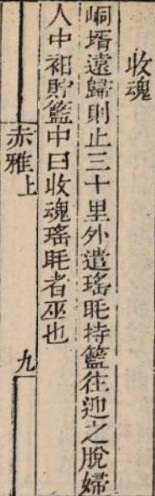 收魂
峒壻遠歸則止三十里外遣瑤毦持籃往迎之脫婦
人中裙貯籃中曰收魂瑤毦者巫也
赤雅上
九